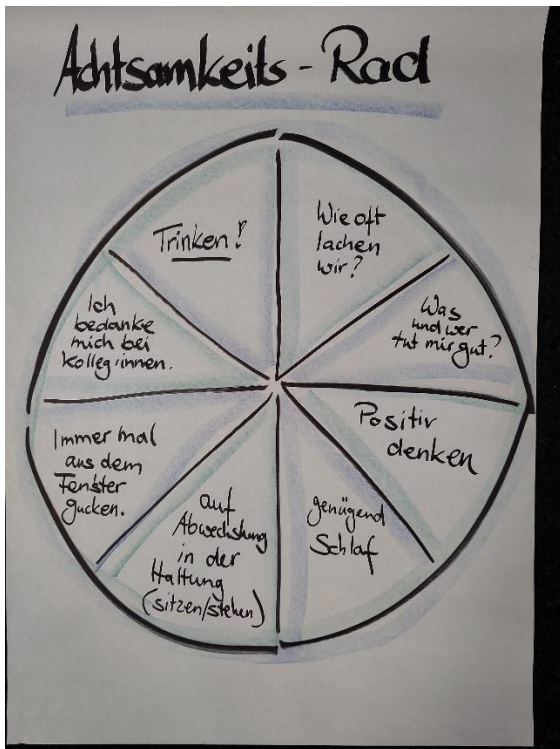 Achtsamkeits-Rad
Wie oft
lachen
wir?
Was
und wer
tut mir gut?
Positiv
denken
genügend
Schlaf
auf
Abwechslung
in der
Haltung
(sitzen/stehen)
Immer mal
aus dem
Fenster
gucken.
Ich
bedanke
mich bei
Kolleg:innen.
Trinken!